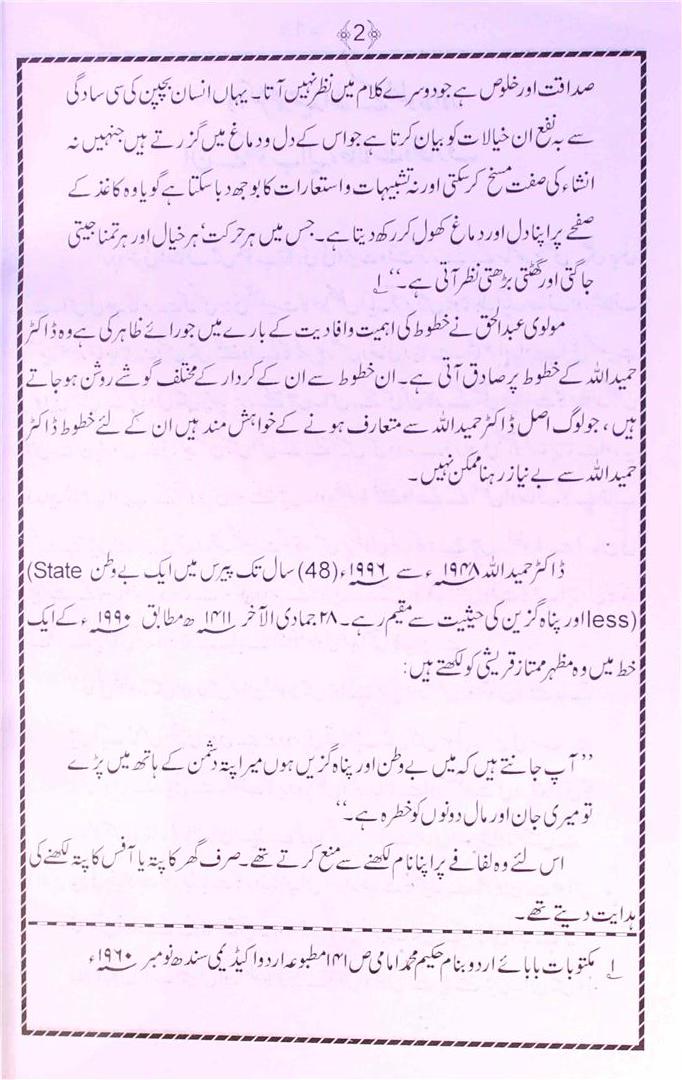 2
صداقت اور خلوص ہے جو دوسرے کلام میں نظر نہیں آتا۔ یہاں انسان بچپن کی سی سادگی
سے بہ نفع ان خیالات کو بیان کرتا ہے جو اس کے دل و دماغ میں گزرتے ہیں جنہیں نہ
انشاء کی صفت مسخ کر سکتی اور نہ تشبیہات و استعارات کا بوجھ دبا سکتا ہے گویا وہ کاغذ کے
صفحے پر اپنا دل اور دماغ کھول کر رکھ دیتا ہے۔ جس میں ہر حرکت‘ ہر خیال اور ہر تمنا جیتی
جاگتی اور گھٹتی بڑھتی نظر آتی ہے۔‘‘ ۱
مولوی عبدالحق نے خطوط کی اہمیت و افادیت کے بارے میں جو رائے ظاہر کی ہے وہ ڈاکٹر
حمید اللہ کے خطوط پر صادق آتی ہے۔ ان خطوط سے ان کے کردار کے مختلف گوشے روشن ہو جاتے
ہیں، جو لوگ اصل ڈاکٹر حمید اللہ سے متعارف ہونے کے خواہش مند ہیں ان کے لئے خطوط ڈاکٹر
حمید اللہ سے بے نیاز رہنا ممکن نہیں۔
ڈاکٹر حمید اللہ ۱۹۴۸ء سے ۱۹۹۶ء (48) سال تک پیرس میں ایک بے وطن (State
less) اور پناہ گزین کی حیثیت سے مقیم رہے۔ ۲۸ جمادی الآخر ۱۴۱۱ھ مطابق ۱۹۹۰ء کے ایک
خط میں وہ مظہر ممتاز قریشی کو لکھتے ہیں:
’’آپ جانتے ہیں کہ میں بے وطن اور پناہ گزیں ہوں میرا پتہ دشمن کے ہاتھ میں پڑے
تو میری جان اور مال دونوں کو خطرہ ہے۔‘‘
اس لئے وہ لفافے پر اپنا نام لکھنے سے منع کرتے تھے۔ صرف گھر کا پتہ یا آفس کا پتہ لکھنے کی
ہدایت دیتے تھے۔
۱ مکتوبات بابائے اردو بنام حکیم محمد امامی ص ۱۴۱ مطبوعہ اردو اکیڈیمی سندھ نومبر ۱۹۶۰ء